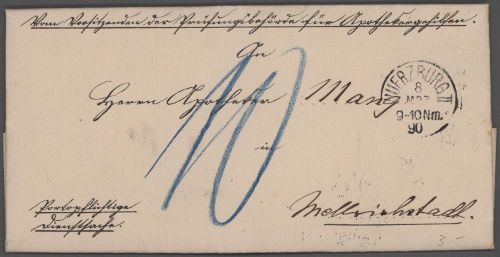 Vom Vorsitzenden der Prüfungsbehörde für Apothekergehilfen.
An
Herrn Apotheker Mang
WUERZBURG II
8
MRZ
9-10 Nm.
90
10
in
Mellrichstadt.
Portopflichtige
Dienstsache.
3.-